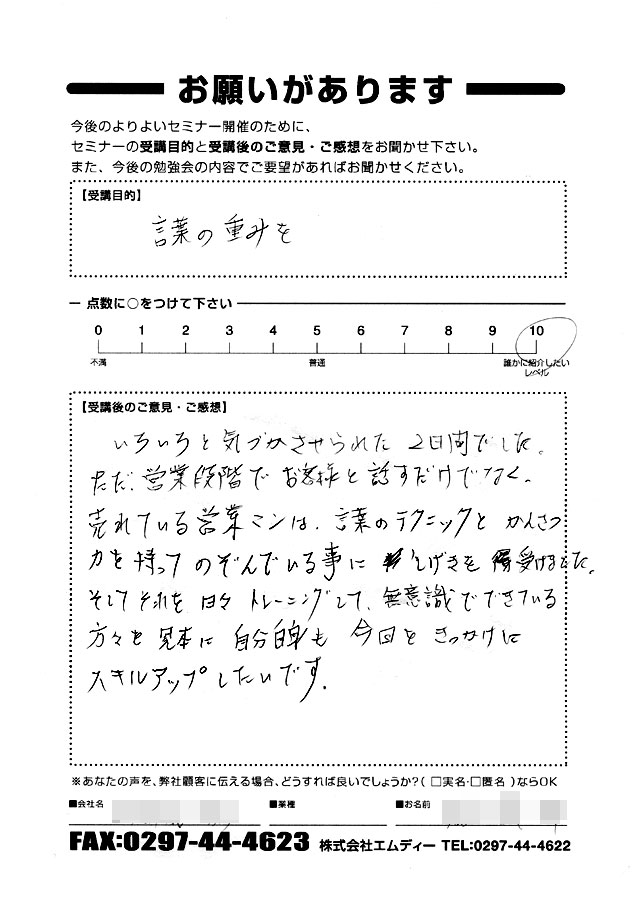 お願いがあります
今後のよりよいセミナー開催のために、
セミナーの受講目的と受講後のご意見・ご感想をお聞かせ下さい。
また、今後の勉強会の内容でご要望があればお聞かせください。
【受講目的】
言葉の重みを
点数に○をつけて下さい
0 1 2 3 4 5 6 7 8 9 10
不満 普通 誰かに紹介したい
レベル
【受講後のご意見・ご感想】
いろいろと気づかさせられた 2日間でした。
ただ、営業段階でお客様と話すだけでなく、
売れている営業マンは、言葉のテクニックと かんさつ
力を持って のぞんでいる事に しげきを 受けました。
そしてそれを 日々 トレーニングして、無意識でできている
方々を 見本に 自分自身も 今回を きっかけに
スキルアップしたいです。
※あなたの声を、弊社顧客に伝える場合、どうすれば良いでしょうか？（ □実名・□匿名 ）ならOK
■会社名 ■業種 ■お名前
FAX:0297-44-4623 株式会社エムディー TEL:0297-44-4622